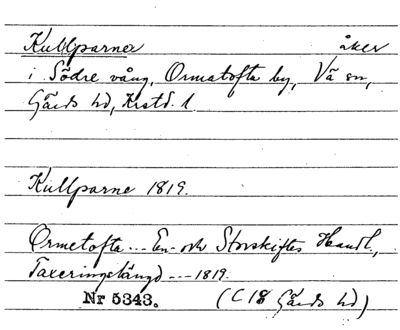 Kullparner åker
i Södre vång, Ormatofta by, Vä sn,
Gärds hd, Krstd. l
Kullparne 1819.
Ormetofta --- En- och Storskiftes Handl.,
Taxeringslängd --- 1819.
Nr 5343. (C 18 Gärds hd)